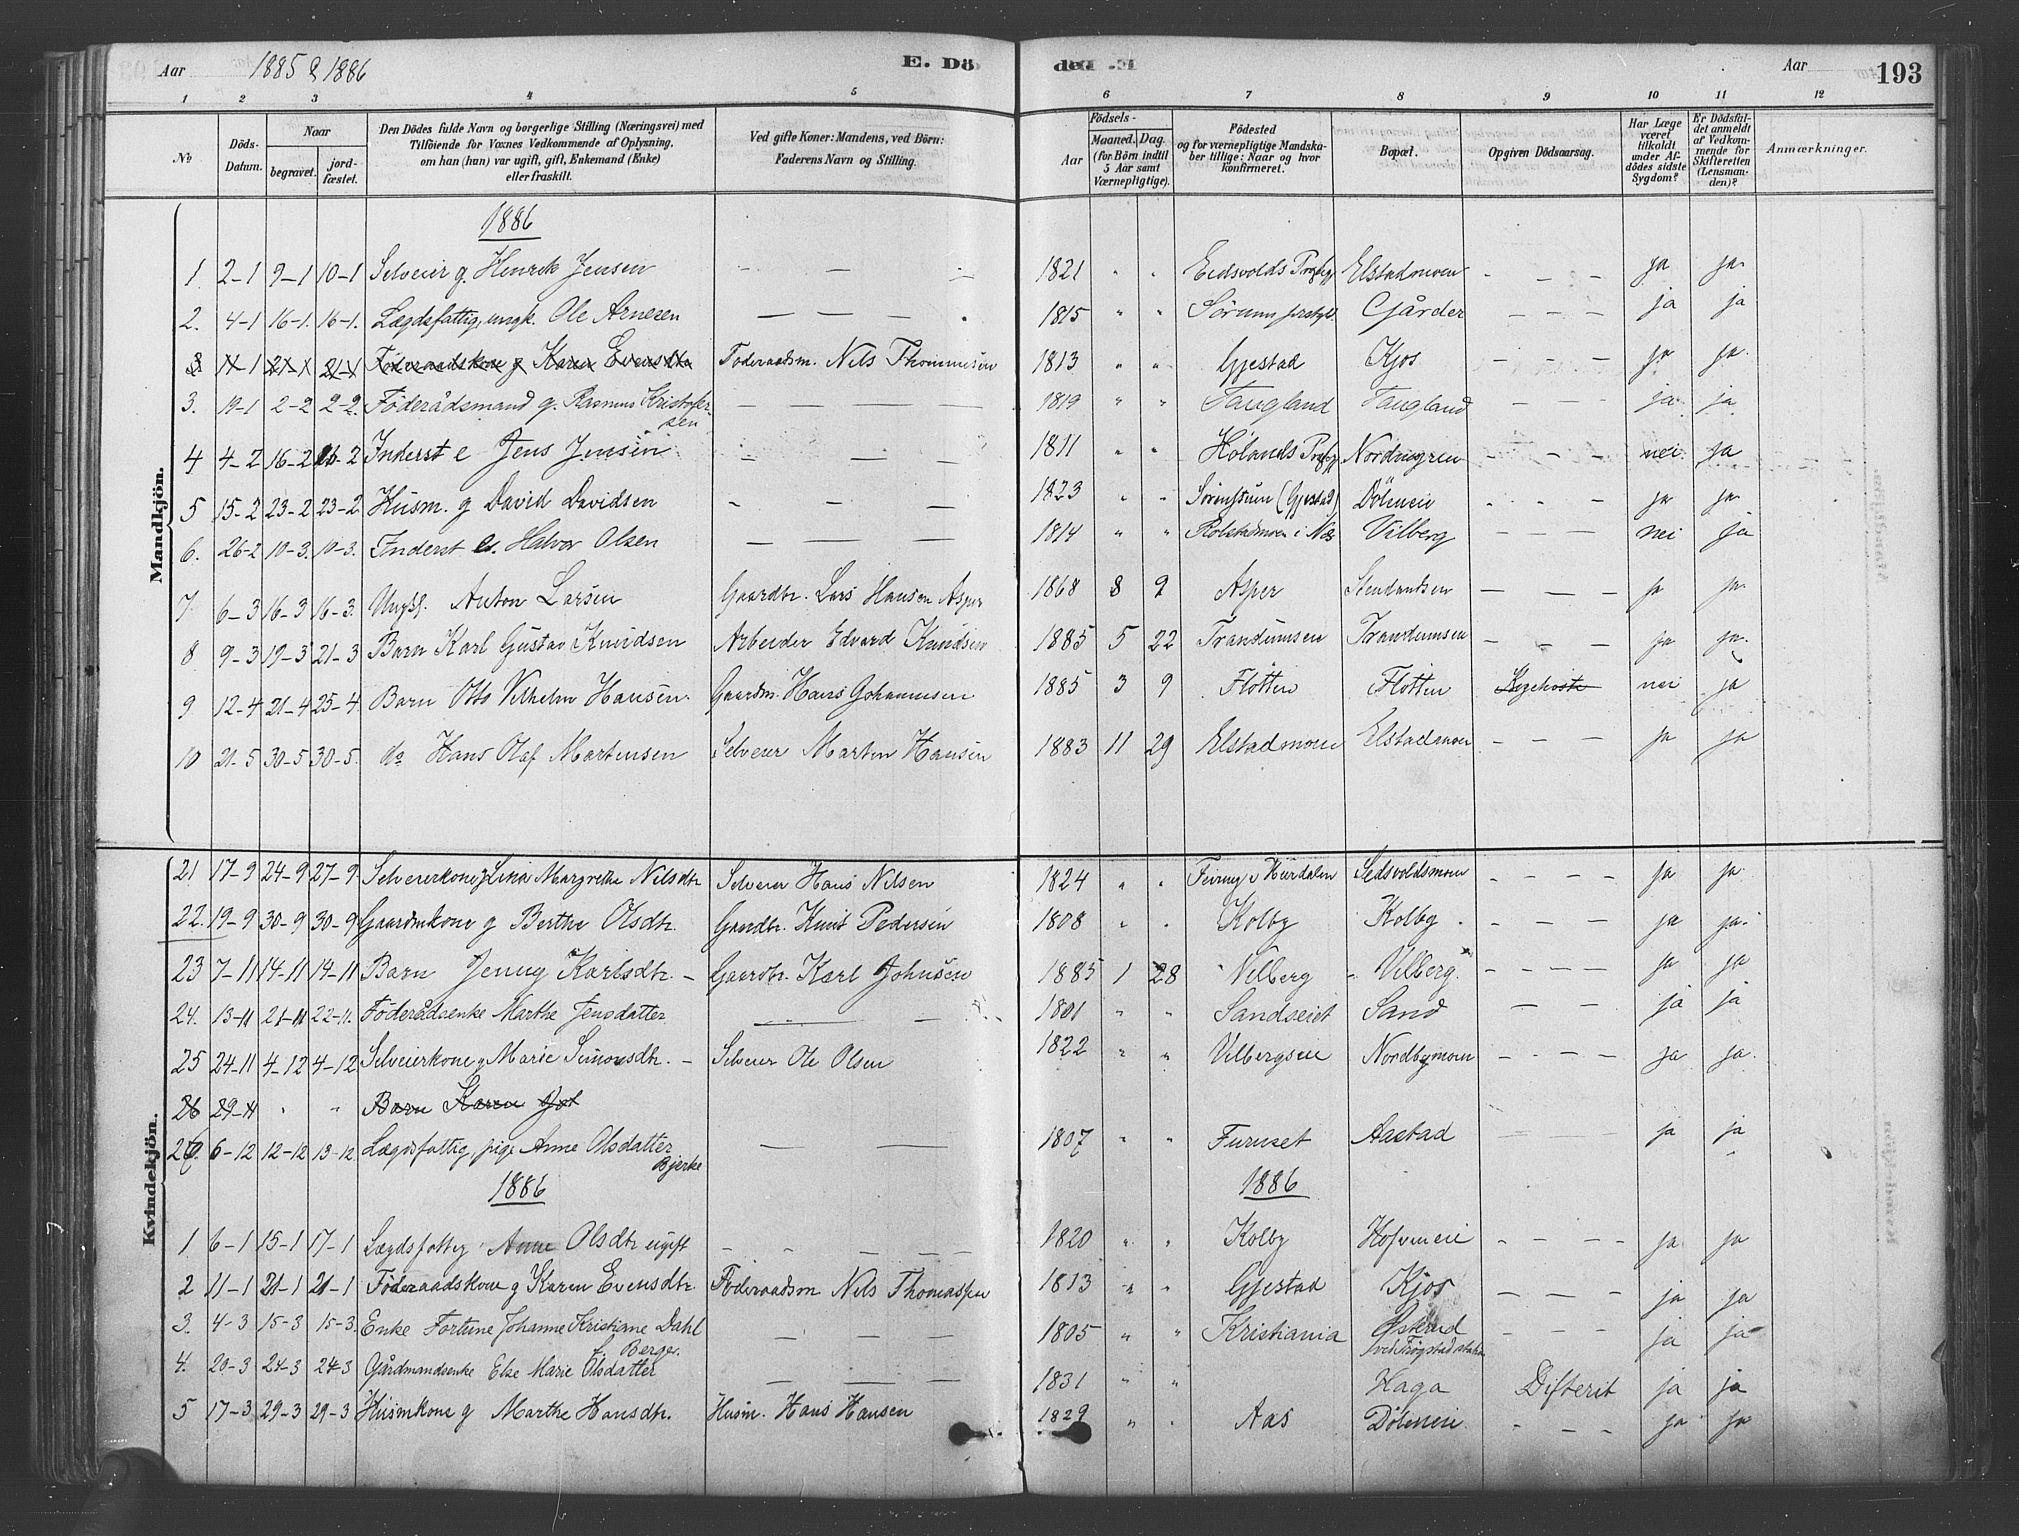 Aar 1885 & 1886 E. Döden E. Aar 193
1 2 3 4 5 6 7 8 9 10 11 12
No
Döds-Datum.
Naar
begravet.
jord-fæstet.
Den Dödes fulde Navn og borgerlige Stilling (Næringsvei) med
Tilföiende for Voxnes Vedkommende af Oplysning,
om han (han) var ugift, gift, Enkemand (Enke)
eller fraskilt.
Ved gifte Koner: Mandens, ved Börn:
Faderens Navn og Stilling.
Födsels-
Aar
Maaned. Dag.
(for Börn indtil
5 Aar samt
Værnepligtige).
Födested
og for værnepligtige Mandska-
ber tillige: Naar og hvor
konfirmeret.
Bopæl.
Opgiven Dödsaarsag.
Har Læge
været
tilkaldt
under Af-
dödes sidste
Sygdom?
Er Dödsfal-
det anmeldt
af Vedkom-
mende for
Skifteretten
(Lensman-
den)?
Anmærkninger.
Mandkjön.
1886
1. 2-1 9-1 10-1 Selveier g. Henrik Jensen — — — 1821 " " Eidsvolds Præstgj Elstadmoen - - - ja ja
2. 4-1 16-1. 16-1. Lægdsfattig, ungk. Ole Arnesen — — — 1815 " " Sørum Gjårder - - - ja ja
3 11-1 21-1 21-1 Föderaadskone g Karen Evensdtr Föderaadsm. Nils Thommesen 1813 " " Gjestad Kjos - - - ja ja
3. 19-1 2-2 2-2. Föderådsmand g. Rasmus Kristofer-
sen — — — 1819 " " Taugland Taugland - - - ja ja
4 4-2 16-2 16-2 Inderst e Jens Jensen — — — 1811 " " Hølands Præstgj Nordmyren - - - nei ja
5 15-2 23-2 23-2 Husm. g David Davidsen — — — 1823 " " (Gjestad) Dølmeie - - - ja ja
6. 26-2 10-3. 10-3. Inderst e. Halvor Olsen — — — 1814 " " Rolstadmoen i Næs Vilberg - - - nei ja
7. 6-3 16-3 16-3. Ungk. Anton Larsen Gaardbr. Lars Hansen Asper 1868 8 9 Asper - - - ja ja
8 9-3 19-3 21-3 Barn Karl Gustav Knudsen Arbeider Edvard Knudsen 1885 5 22 Trandumseie Trandumseie - - - ja ja
9 12-4 21-4 25-4 Barn Otto Vilhelm Hansen. Gaardm. Hans Johannesen 1885 3 9 Fløtten Fløtten Kighoste nei ja
10 21-5 30-5 30-5. do Hans Olaf Martensen Selveier Marten Hansen 1883 11 29 Elstadmoen Elstadmoen - - - ja ja
Kvindekjön.
21 17-9 24-9 27-9 Selveierkone g Lina Margrethe Nilsdtr Selveier Hans Nilsen 1824 " " Feiring i Hurdalen - - - ja ja
22. 19-9 30-9 30-9 Gaardmkone g Berthe Olsdtr. Gaardbr. Knut Pedersen 1808 " " Kolby Kolby - - - ja ja
23 7-11 14-11 14-11 Barn Jenny Karlsdtr. — Gaardbr. Karl Johnsen 1885 1 28 Vilberg Vilberg - - - ja ja
24. 13-11 21-11 22-11. Föderådsenke Marthe Jensdatter — — 1801 " " Sandseiet Sand - - ja ja
25 24-11 4-12 4-12 Selveierkone g Marie Simonsdtr. — Selveier Ole Olsen 1822 " " Vilbergseie Nordbymoen - - - ja ja
26 29-11 " " Barn Karen
26. 6-12 12-12 13-12 Lægdsfattig, pige Anne Olsdatter
Bjerke — — 1807 " " Furuset Aastad - - - ja ja
1886 1886
1. 6-1 15-1 17-1 Lægdsfattig Anne Olsdtr ugift - - - - 1820 " " Kolby Hofvineie - - - ja ja
2 11-1 21-1 21-1 Föderaadskone g Karen Evensdtr Föderaadsm Nils Thomassen 1813 " " Gjestad Kjos - - - ja ja
3. 4-3 15-3 15-3. Enke Fortune Johanne Kristiane Dahl
f. Berger. — — — 1805 " " Kristiania Østerud
ved Trøgstad - - - ja ja
4. 20-3 24-3 24-3 Gårdmandsenke Else Marie Olsdatter — — — 1831 " " Haga Difterit ja ja
5 17-3 29-3 29-3 Husmkone g Marthe Hansdtr. Husm. Hans Hansen 1829 " " Aas Dølmeie - - - ja ja